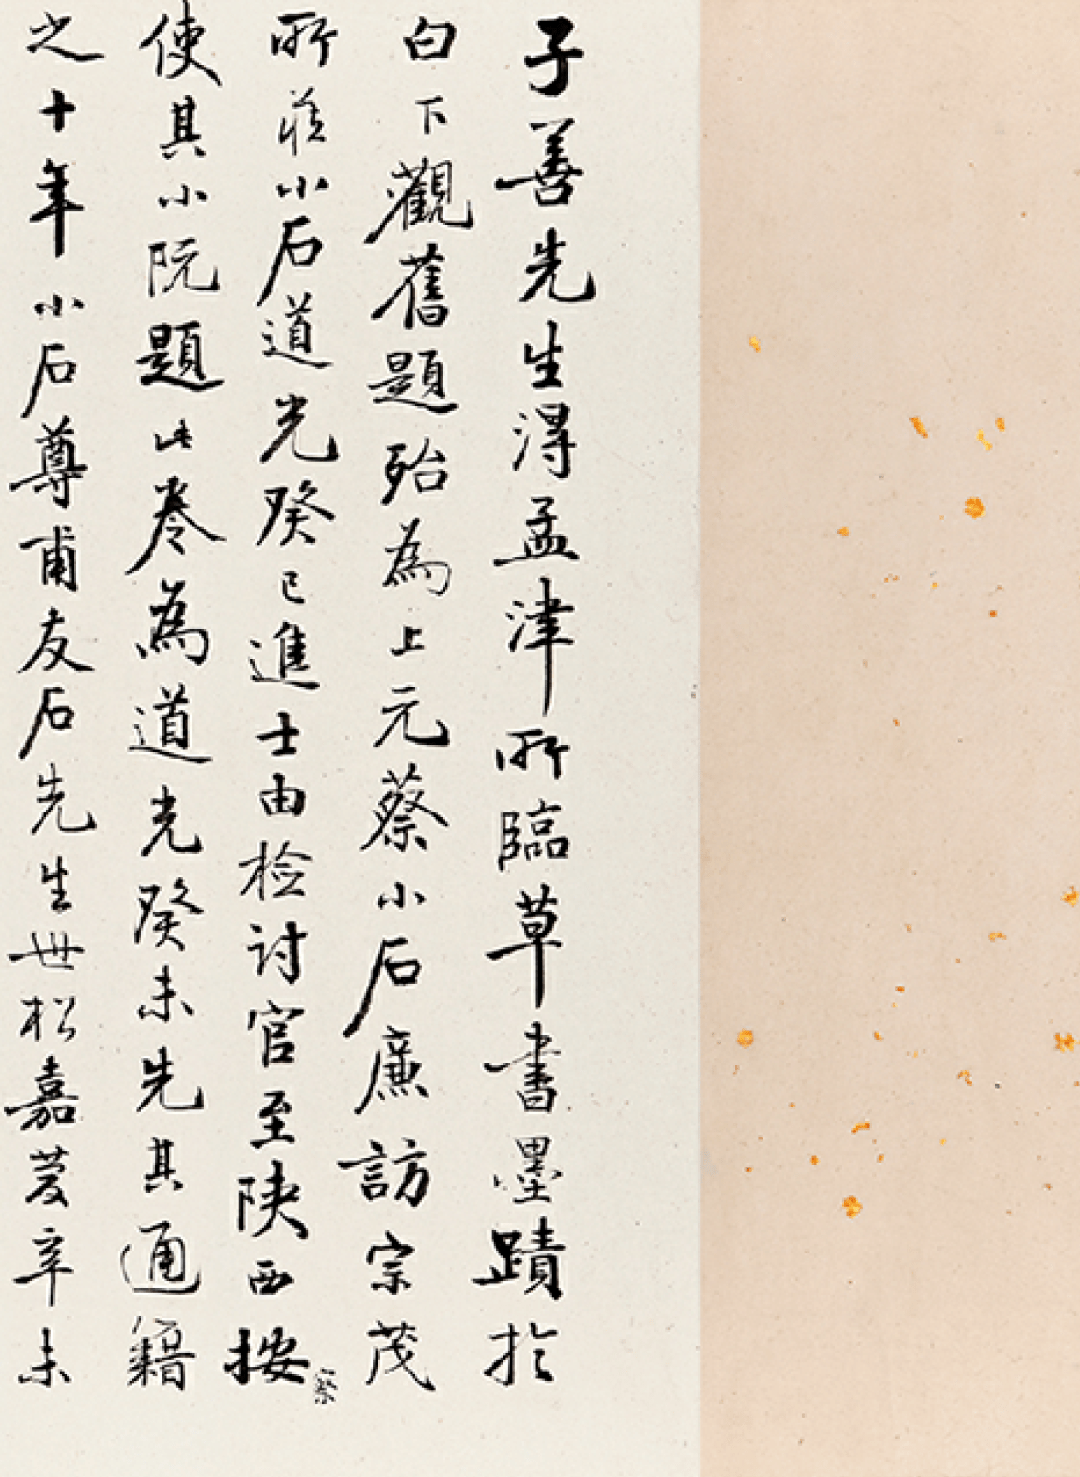 子善先生得孟津所臨草書墨蹟於
白下觀舊題殆為上元蔡小石廉訪宗茂
所藏小石道光癸巳進士由檢討官至陝西按察
使其小阮題此卷為道光癸未先其通籍
之十年小石尊甫友石先生世松嘉慶辛未